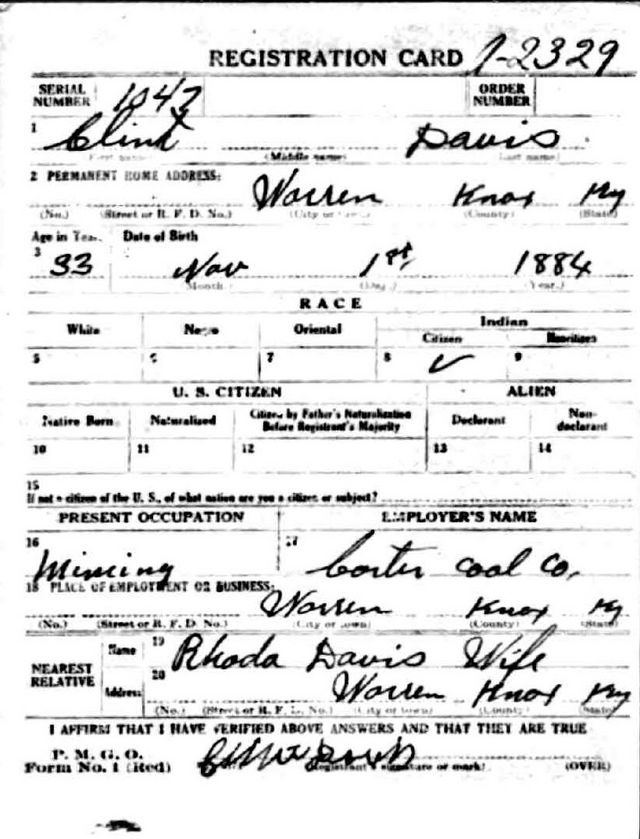 REGISTRATION CARD 1-2329
SERIAL NUMBER 1047 ORDER NUMBER
1 Clint Davis
(First name) (Middle name) (Last name)
2 PERMANENT HOME ADDRESS: Warren Knox Ky
(No.) (Street or R. F. D. No.) (City or town) (County) (State)
Age in Years Date of Birth
3 33 Nov 1st 1884
(Month.) (Day.) (Year.)
RACE
White Negro Oriental Indian
Citizen Noncitizen
5 6 7 8 ✓ 9
U. S. CITIZEN ALIEN
Native Born Naturalized Citizen by Father's Naturalization Before Registrant's Majority Declarant Non-declarant
10 11 12 13 14
15
If not a citizen of the U. S., of what nation are you a citizen or subject?
PRESENT OCCUPATION EMPLOYER'S NAME
16 Mining 17 Coal Co.
18 PLACE OF EMPLOYMENT OR BUSINESS:
Warren Knox Ky
(No.) (Street or R. F. D. No.) (City or town) (County) (State)
NEAREST RELATIVE Name 19 Rhoda Davis Wife
Address 20 Warren Knox Ky
(No.) (Street or R. F. D. No.) (City or town) (County) (State)
I AFFIRM THAT I HAVE VERIFIED ABOVE ANSWERS AND THAT THEY ARE TRUE
P. M. G. O.
Form No. 1 (Red) (Registrant's signature or mark) (OVER)